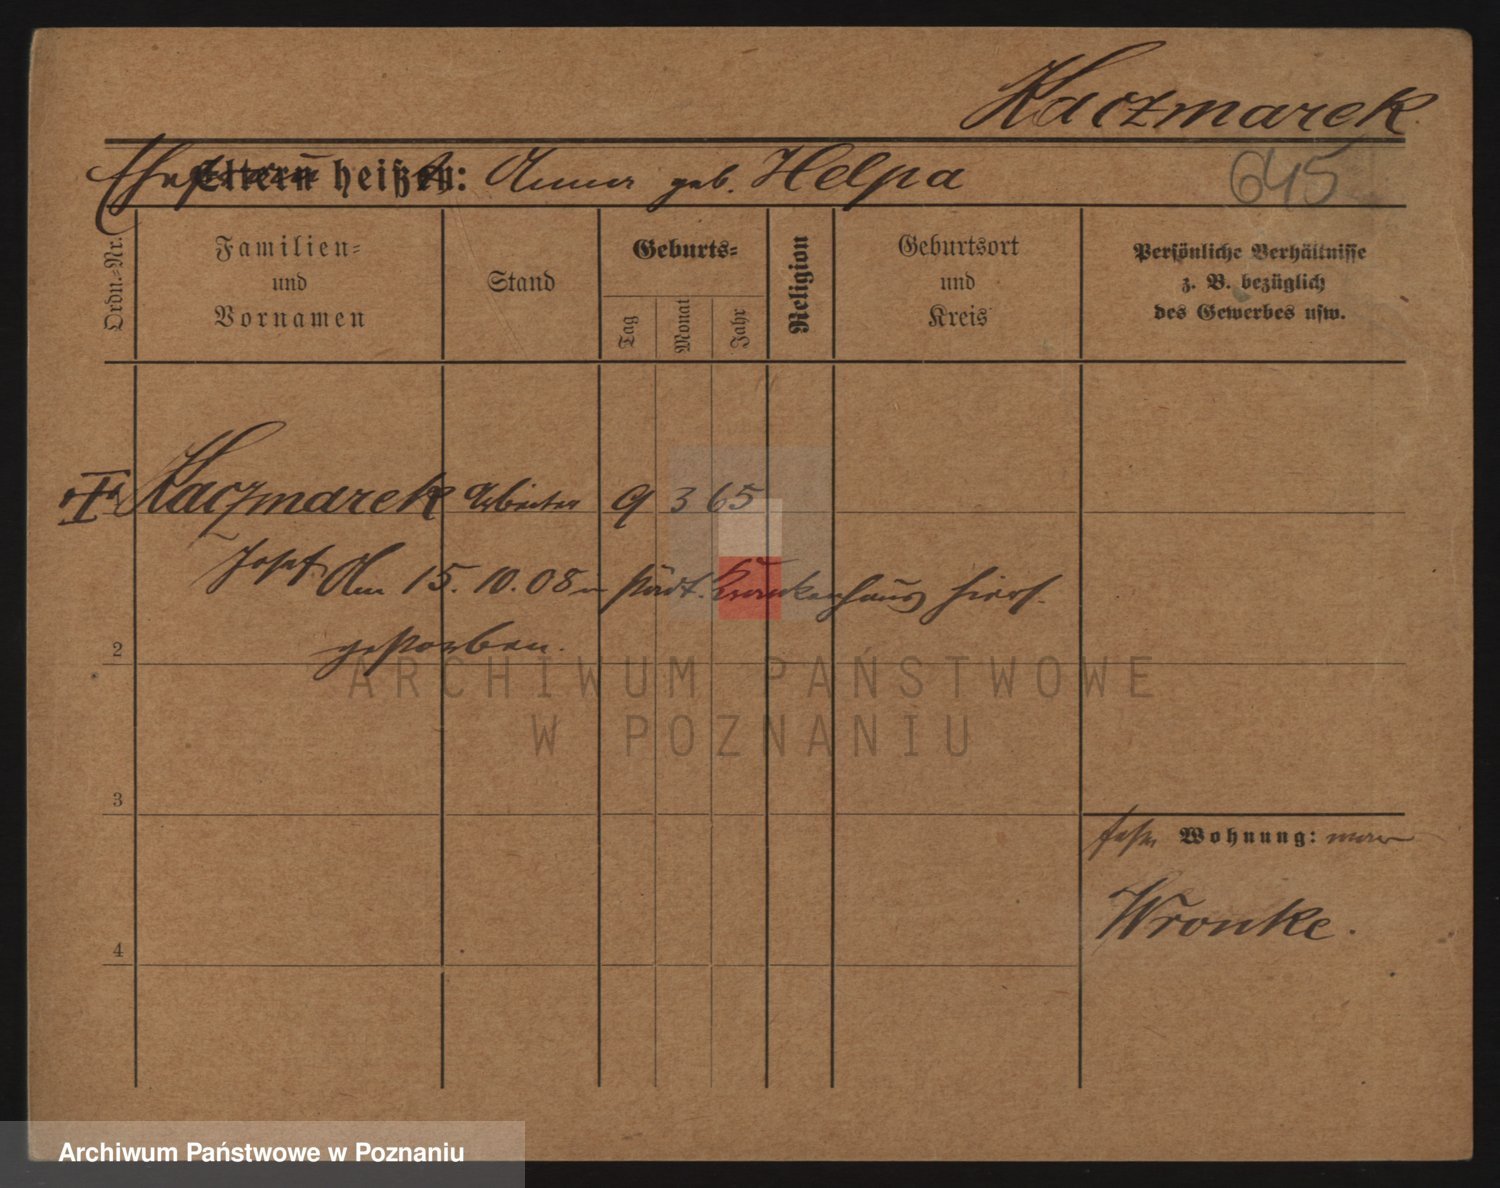 Kaczmarek
Ehefrau heißt: Anna geb. Helpa
645
Ordn.=Nr.
Familien=
und
Vornamen
Stand
Geburts=
Tag
Monat
Jahr
Religion
Geburtsort
und
Kreis
Persönliche Verhältnisse
z. B. bezüglich
des Gewerbes usw.
Kaczmarek Arbeiter 9 3 65
Josef Am 15. 10. 08 im städt. Krankenhaus hiers.
gestorben.
2
ARCHIWUM PAŃSTWOWE
W POZNANIU
3
Wohnung: war
Wronke.
4
Archiwum Państwowe w Poznaniu